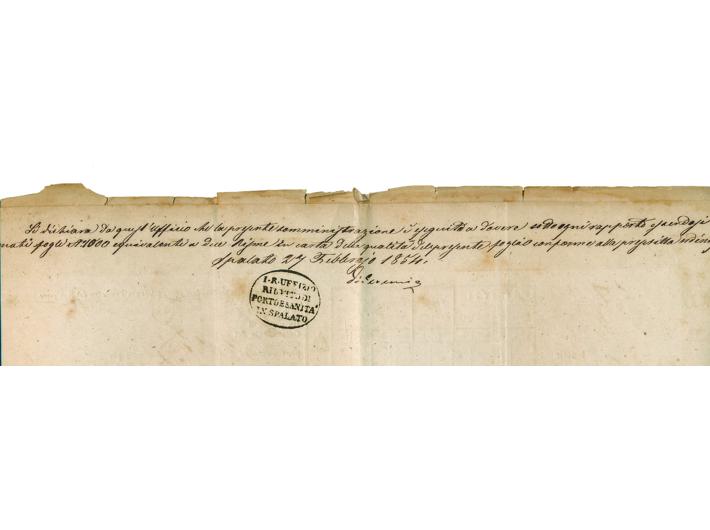 Si dichiara da quest' Uffizio che la presente somministrazione è eseguita a dovere ed ogni rapporto essendosi
fogli N 1000 equivalente a due Risme in carta della qualità del presente foglio conforme alla
Spalato 27 Febbrajo 1854.
I. R. UFFIZIO
DI
PORTO E SANITA'
IN SPALATO